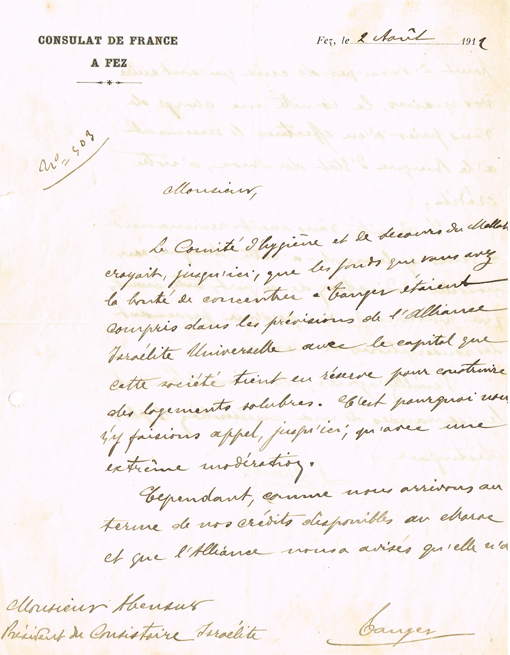 CONSULAT DE FRANCE
A FEZ
Fez, le 2 Août 1912
N° 503
Monsieur,
Le Comité d'hygiène et de secours du Mellah
croyait, jusqu'ici, que les fonds que vous avez
la bonté de concentrer à Tanger étaient
compris dans les prévisions de l'Alliance
Israélite Universelle avec le capital que
cette société tient en réserve pour construire
des logements salubres. C'est pourquoi nous
n'y faisions appel, jusqu'ici, qu'avec une
extrême modération.
Cependant, comme nous arrivons au
terme de nos crédits disponibles au Maroc
et que l'Alliance nous a avisés qu'elle n'a
Monsieur Abensur
Président du Consistoire Israélite
Tanger